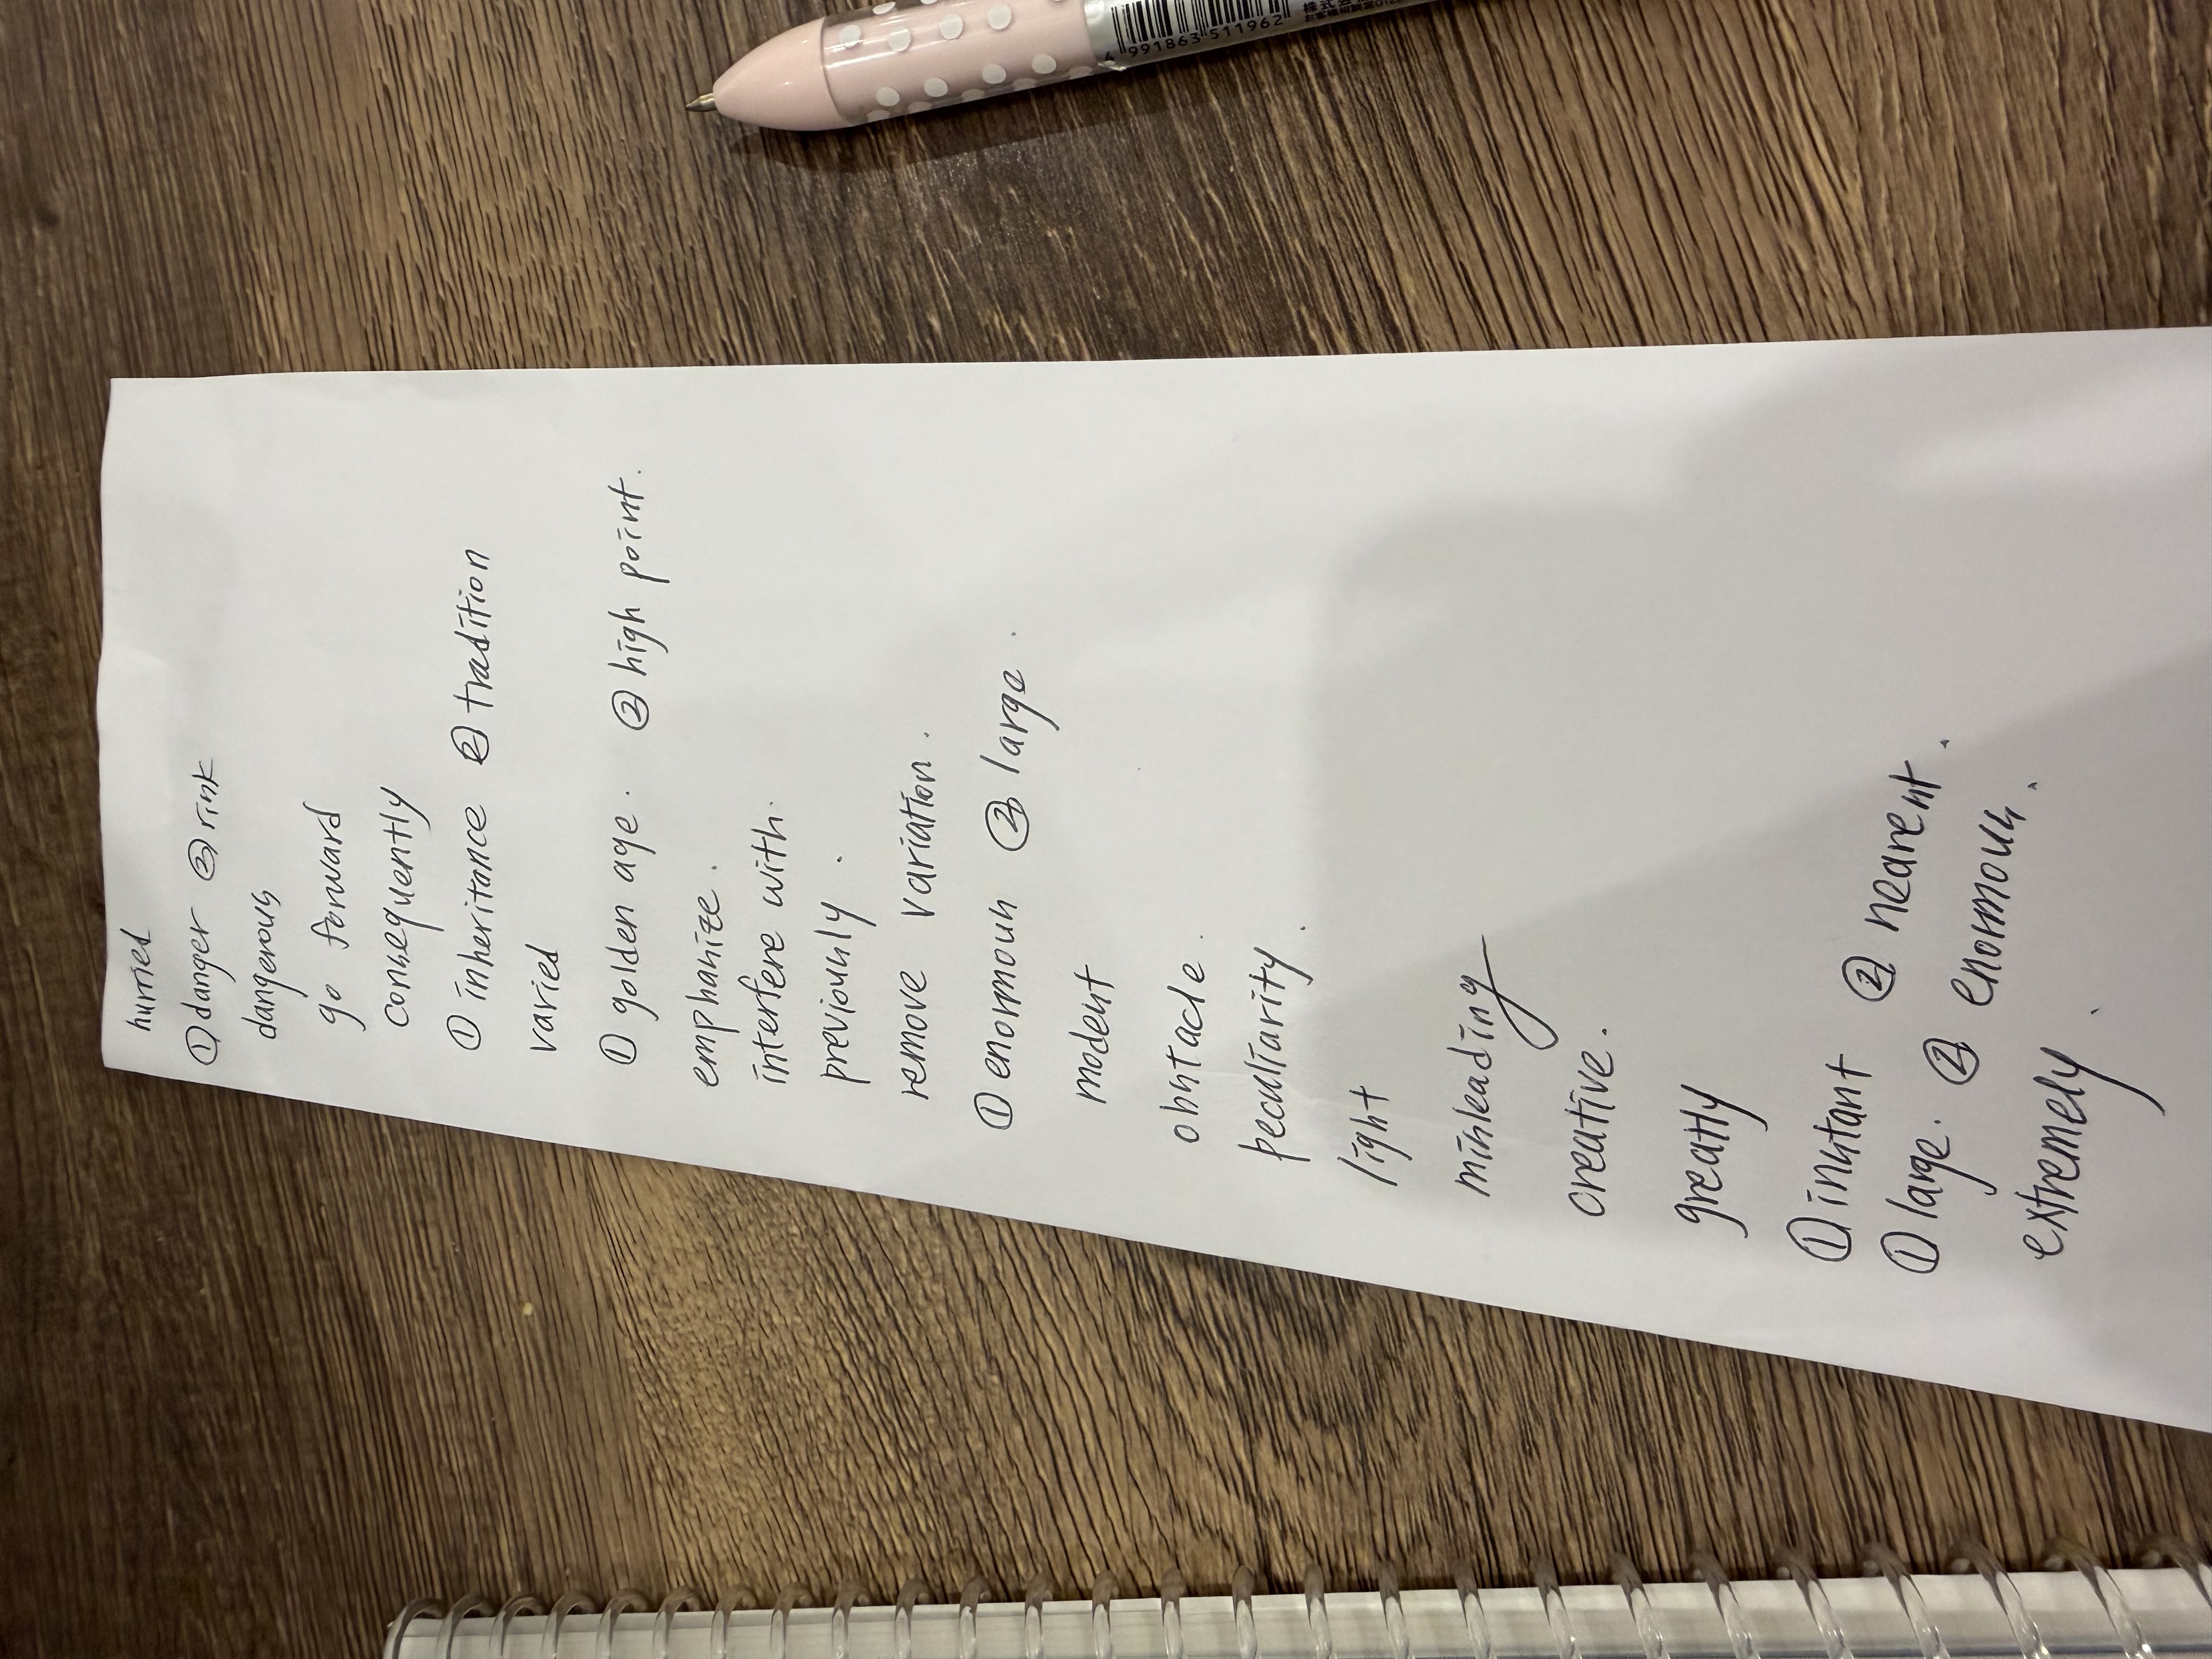 hurried
① danger ② risk
dangerous
go forward
consequently
① inheritance ② tradition
varied
① golden age. ② high point.
emphasize.
interfere with.
previously.
remove variation.
① enormous ② large.
modest
obstacle.
peculiarity.
light
misleading
creative.
greatly
① instant ② nearest.
① large. ② enomous.
extremely.
4 991863 511962